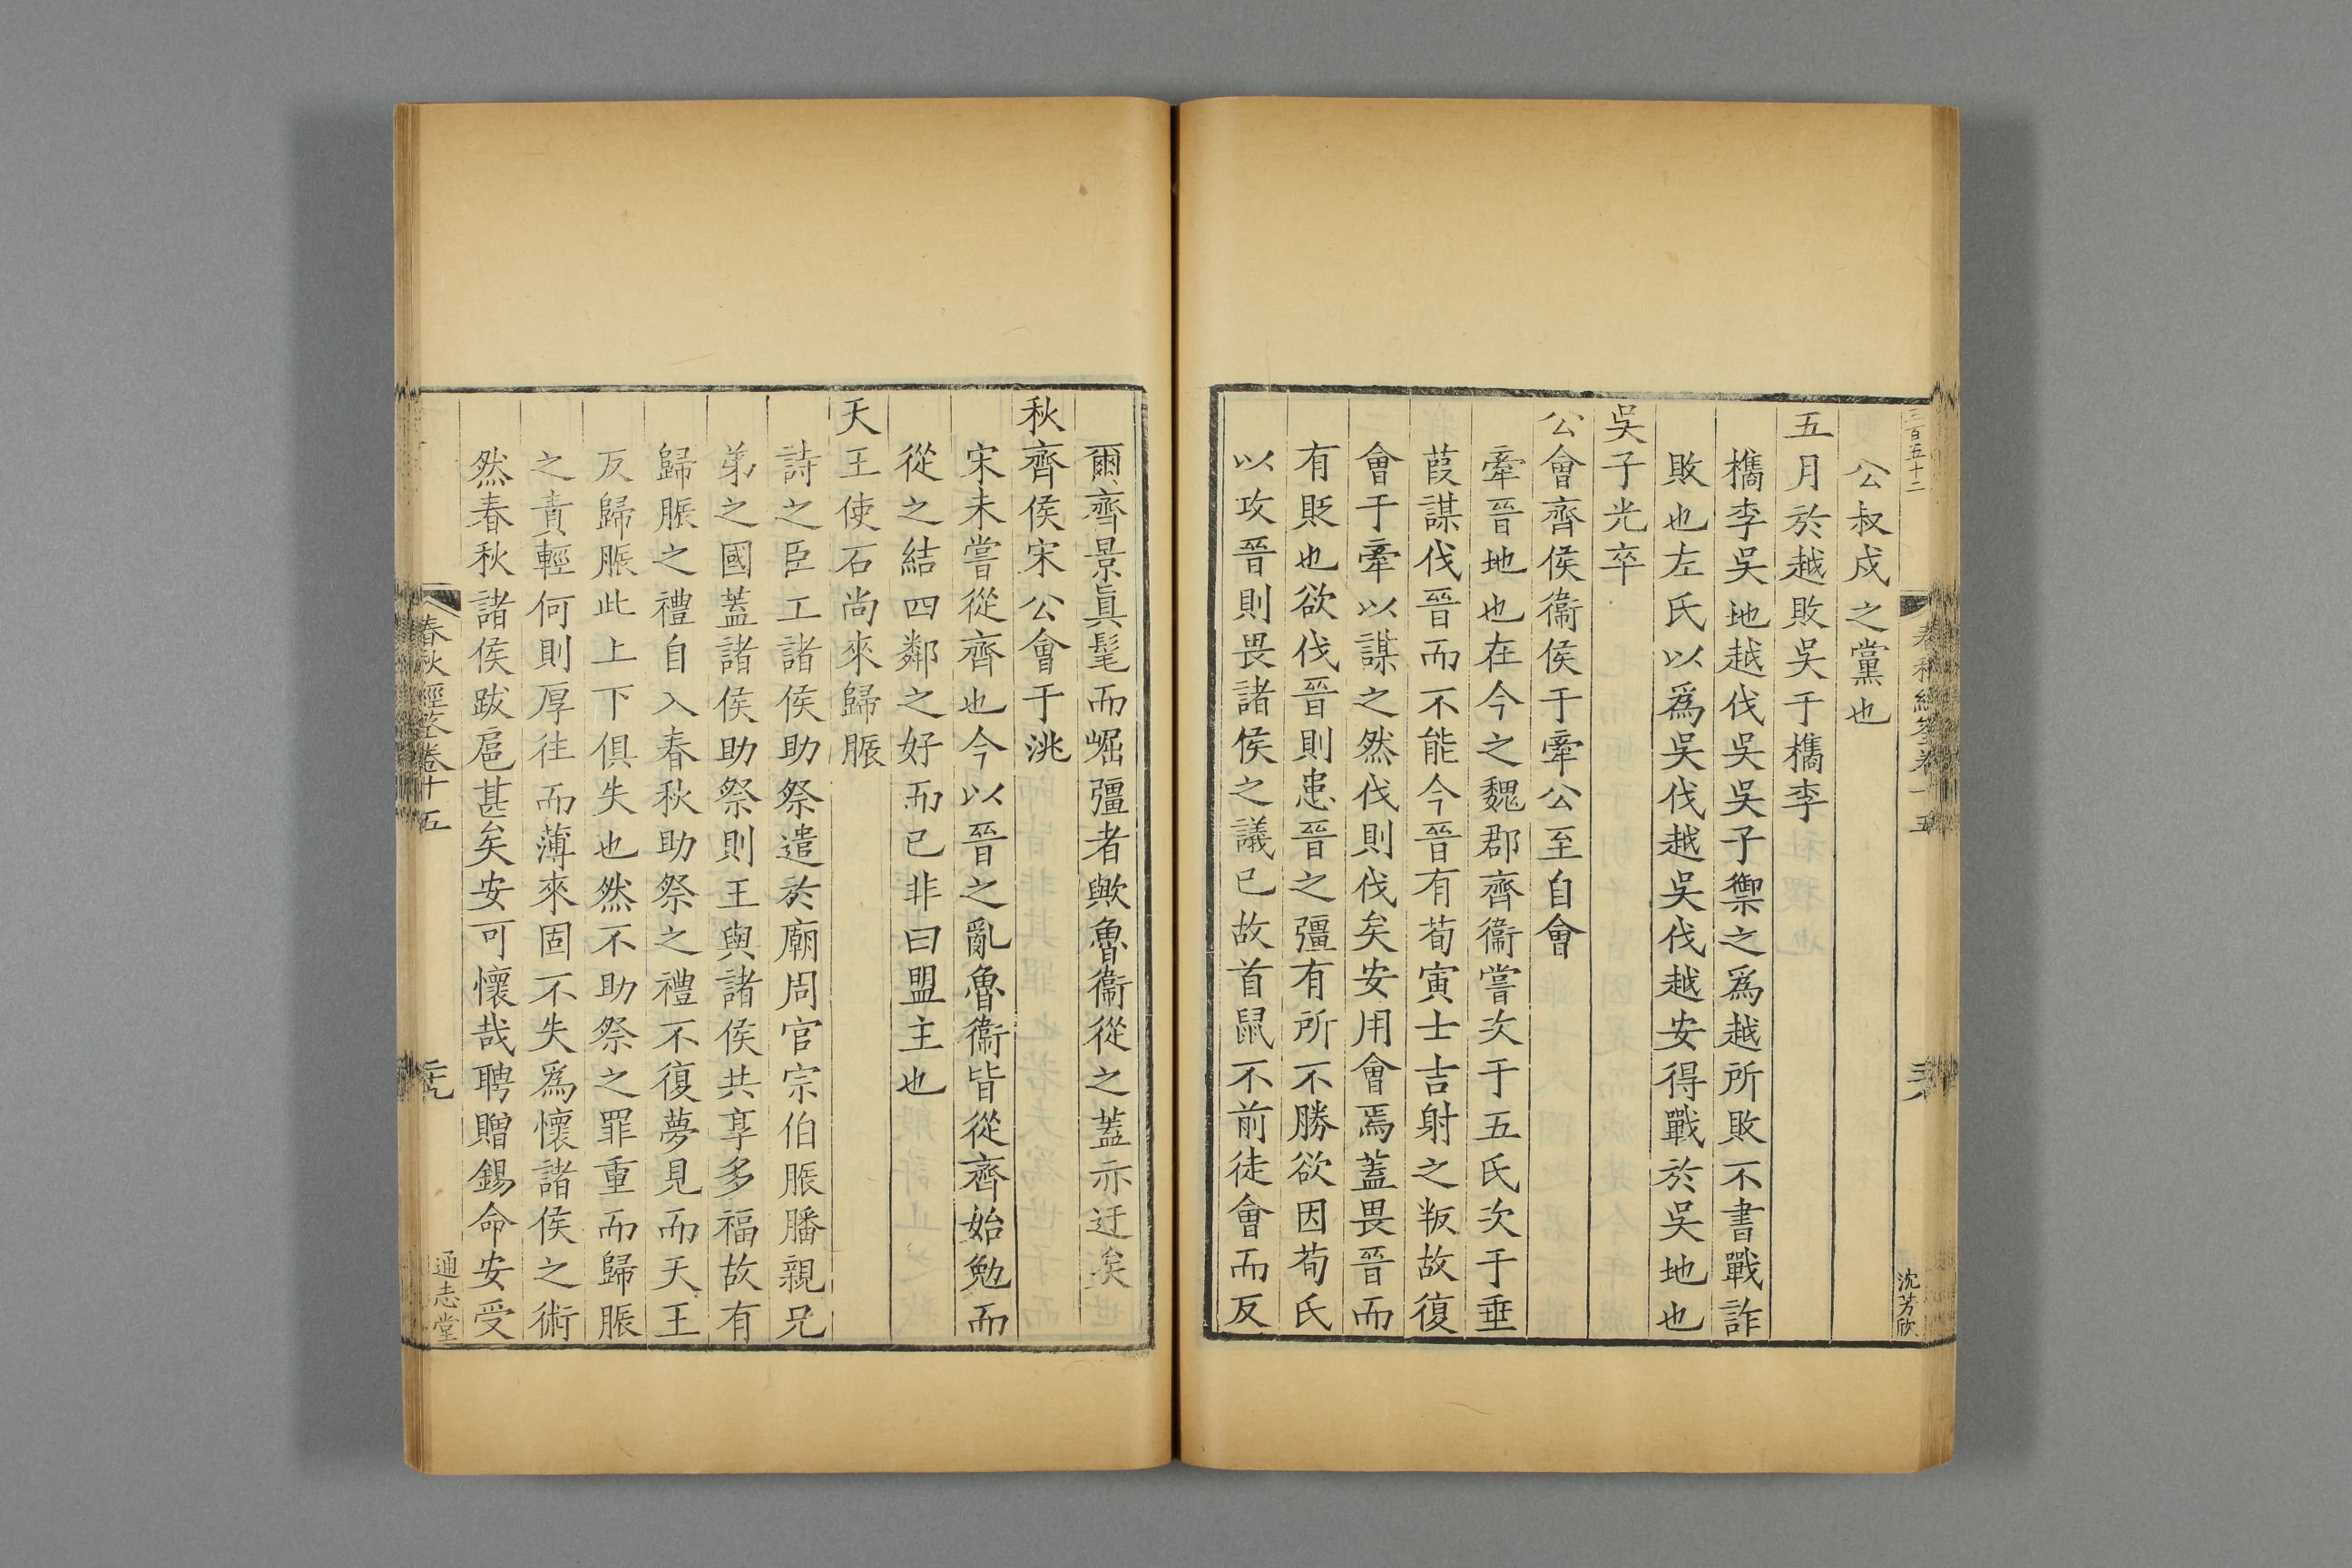 三百五十二
春秋經筌卷十五
沈芳欣
公叔戍之黨也
五月於越敗吳于檇李
檇李吳地越伐吳吳子禦之爲越所敗不書戰詐
敗也左氏以爲吳伐越吳伐越安得戰於吳地也
吳子光卒
公會齊侯衞侯于牽公至自會
牽晉地也在今之魏郡齊衞嘗次于五氏次于垂
葭謀伐晉而不能今晉有荀寅士吉射之叛故復
會于牽以謀之然伐則伐矣安用會焉蓋畏晉而
有貶也欲伐晉則患晉之彊有所不勝欲因荀氏
以攻晉則畏諸侯之議已故首鼠不前徒會而反
爾齊景眞髦而崛彊者歟魯衞從之蓋亦迂矣
秋齊侯宋公會于洮
宋未嘗從齊也今以晉之亂魯衞皆從齊始勉而
從之結四鄰之好而已非曰盟主也
天王使石尚來歸脤
詩之臣工諸侯助祭遣於廟周官宗伯脤膰親兄
弟之國蓋諸侯助祭則王與諸侯共享多福故有
歸脤之禮自入春秋助祭之禮不復夢見而天王
反歸脤此上下俱失也然不助祭之罪重而歸脤
之責輕何則厚往而薄來固不失爲懷諸侯之術
然春秋諸侯跋扈甚矣安可懷哉聘贈錫命安受
春秋經筌卷十五
通志堂